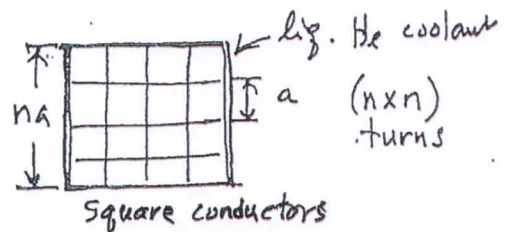 liq. He coolant
na
a
(n×n)
turns
square conductors